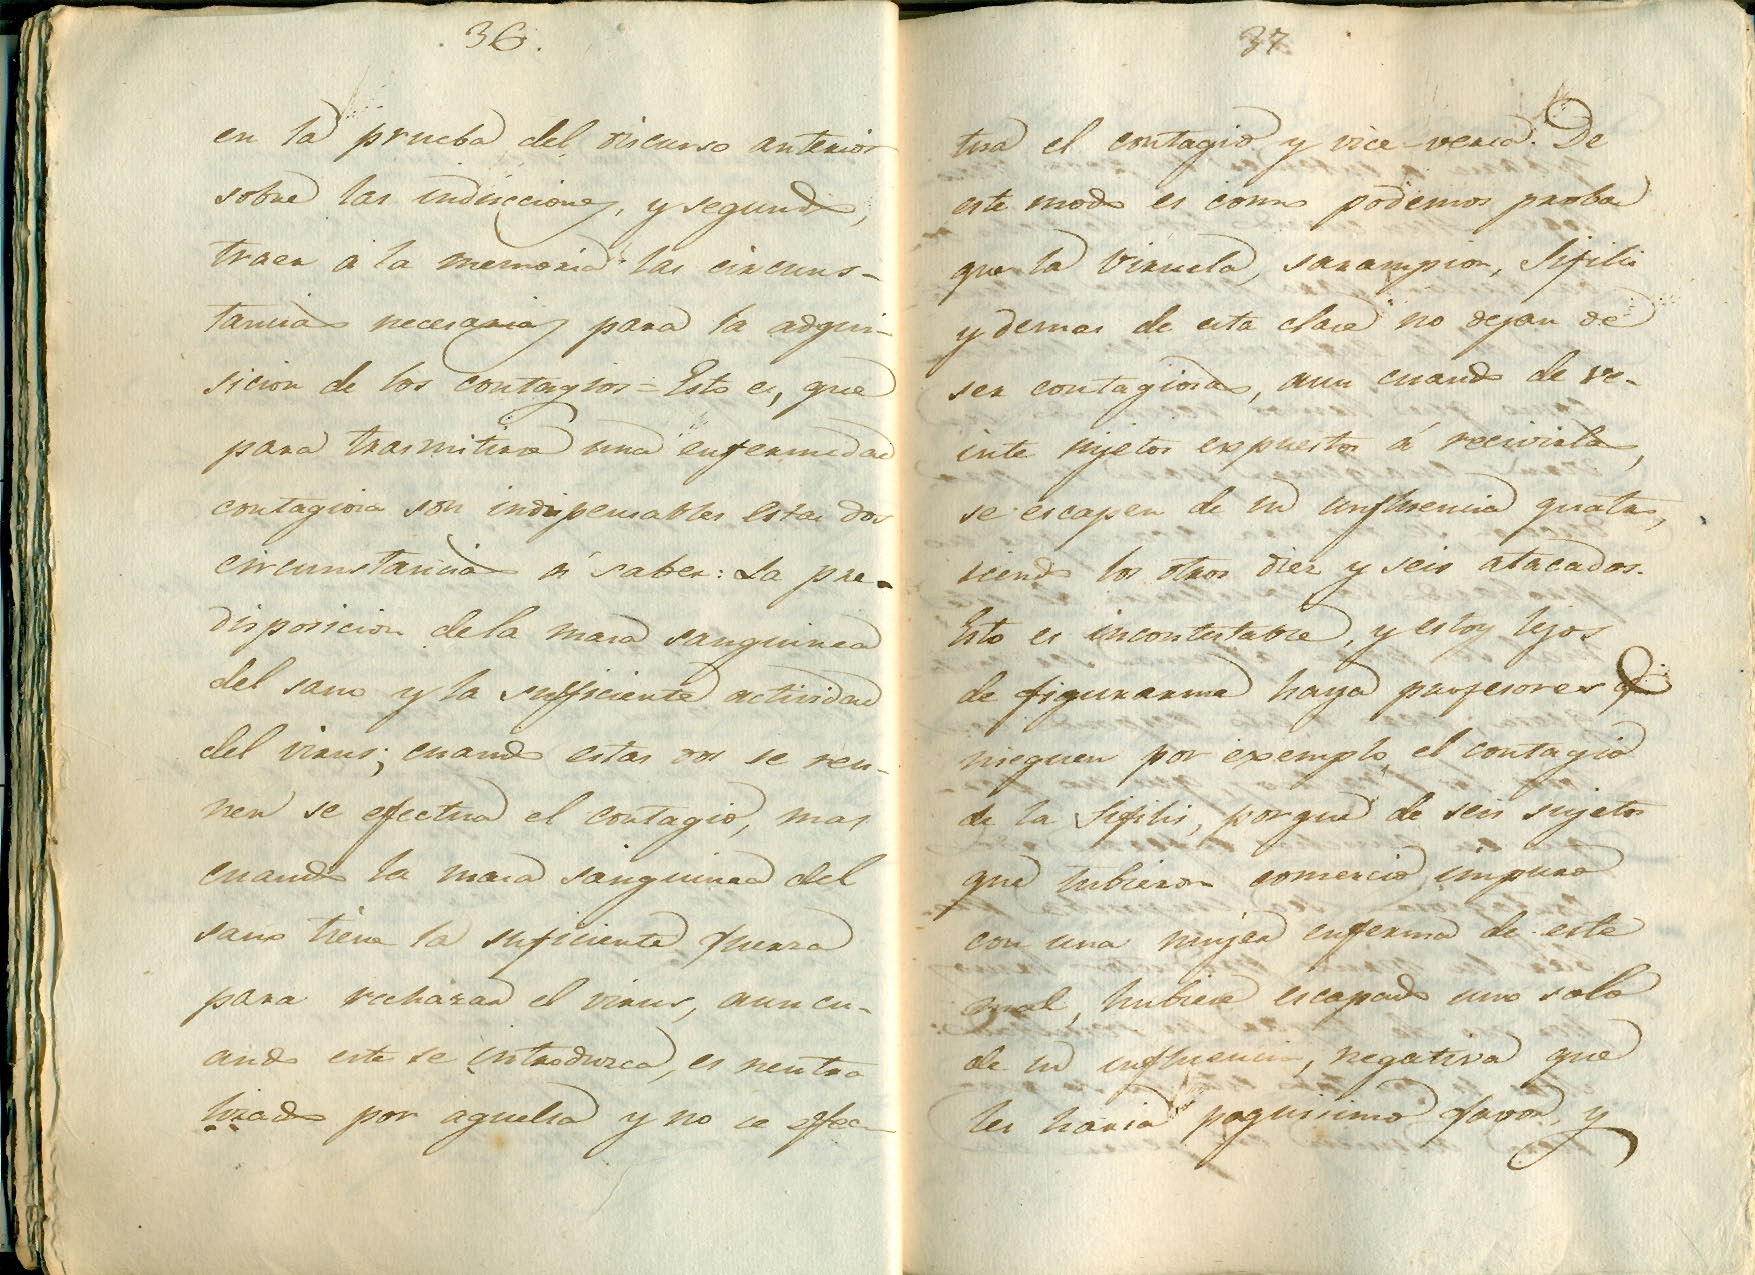 36.
en la prueba del discurso anterior
sobre las indicciones, y segundo,
traer a la memoria las circuns-
tancias necesarias para la adqui-
sicion de los contagios = Esto es, que
para trasmitirse una enfermedad
contagiosa son indispensables estas dos
circunstancias á saber: La pre-
disposicion de la masa sanguinea
del sano y la sufficiente actividad
del virus; cuando estas dos se reu-
nen se efectua el contagio, mas
cuando la masa sanguinea del
sano tiene la suficiente fuerza
para rechazar el virus, aun cu-
ando este se introduzca, es neutra
lizado por aquella y no se efec-
37
tua el contagio y vice-versa. De
este modo es como podemos probar
que la Viruela, sarampion, Sifilis
y demas de esta clase no dejan de
ser contagiosas, aun cuando de ve-
inte sujetos expuestos á recivirla,
se escapen de su influencia quatro,
siendo los otros diez y seis atacados.
Esto es incontestable, y estoy lejos
de figurarme haya profesores q
nieguen por exemplo, el contagio
de la Sifilis, porque de seis sujetos
que tubieron comercio impuro
con una mujer enferma de este
mal, hubiese escapado uno solo
de su influencia, negativa que
les haria poquisimo favor, y